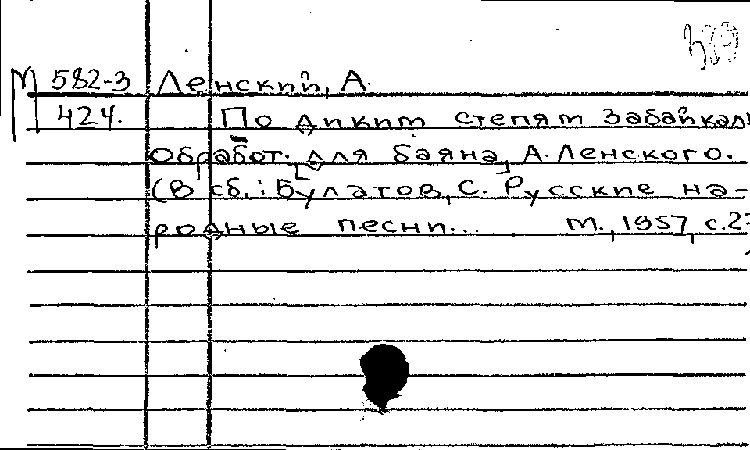 М 582-3 Ленский, А.
424. По диким степям Забайкаль
Обработ. для баяна А. Ленского.
(В сб.: Булатов, С. Русские на-
родные песни... М., 1957, с.2